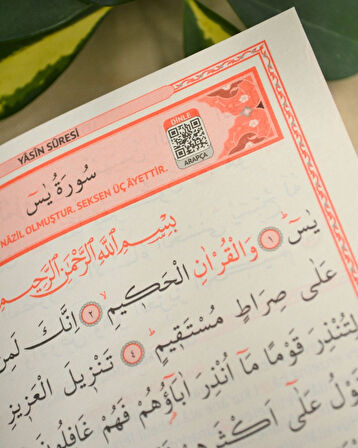 YÂSÎN SÛRESİ
DİNLE
ARAPÇA
سُورَةُ يٰسٓ
NÂZİL OLMUŞTUR. SEKSEN ÜÇ ÂYETTİR.
بِسْمِ اللّٰهِ الرَّحْمٰنِ الرَّحِيمِ
يٰسٓ ۚ ﴿١﴾ وَالْقُرْاٰنِ الْحَكِيمِ ۙ ﴿٢﴾ اِنَّكَ لَمِنَ
عَلٰى صِرَاطٍ مُسْتَقِيمٍ ۜ ﴿٤﴾ تَنْزِيلَ الْعَزِيزِ
لِتُنْذِرَ قَوْمًا مَٓا اُنْذِرَ اٰبَٓاؤُهُمْ فَهُمْ غَافِلُونَ
عَلٰٓى اَكْثَرِ